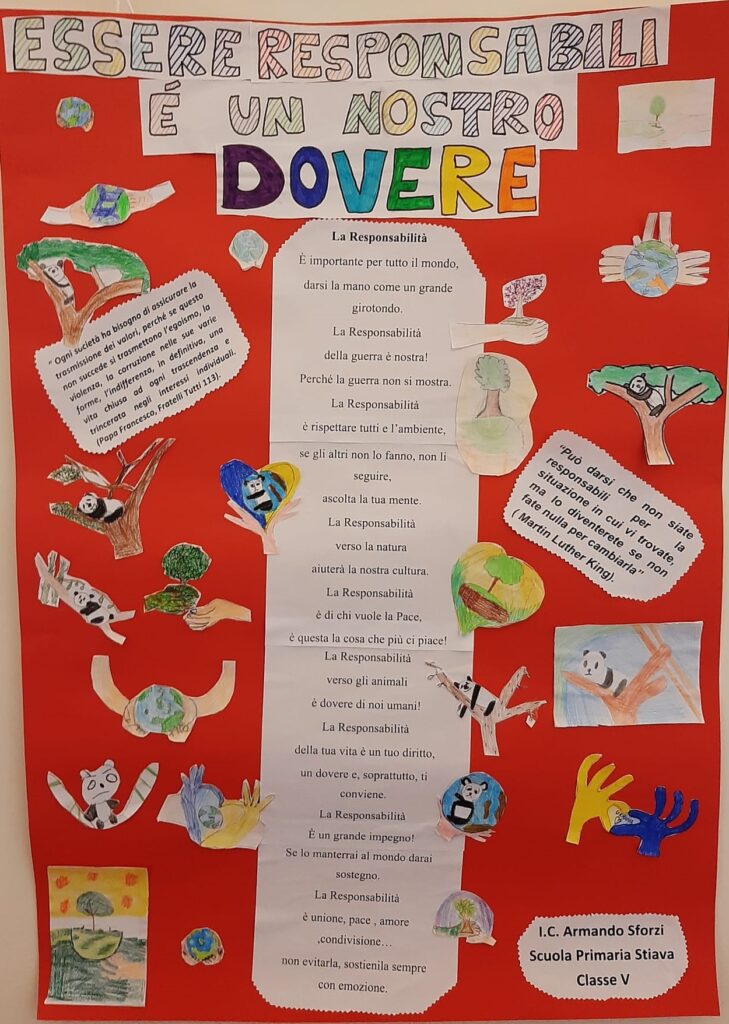 ESSERE RESPONSABILI
É UN NOSTRO
DOVERE
La Responsabilità
È importante per tutto il mondo,
darsi la mano come un grande
girotondo.
La Responsabilità
della guerra è nostra!
Perché la guerra non si mostra.
La Responsabilità
è rispettare tutti e l’ambiente,
se gli altri non lo fanno, non li
seguire,
ascolta la tua mente.
La Responsabilità
verso la natura
aiuterà la nostra cultura.
La Responsabilità
è di chi vuole la Pace,
è questa la cosa che più ci piace!
La Responsabilità
verso gli animali
è dovere di noi umani!
La Responsabilità
della tua vita è un tuo diritto,
un dovere e, soprattutto, ti
conviene.
La Responsabilità
È un grande impegno!
Se lo manterrai al mondo darai
sostegno.
La Responsabilità
è unione, pace , amore
,condivisione…
non evitarla, sostienila sempre
con emozione.
“ Ogni società ha bisogno di assicurare la
trasmissione dei valori, perché se questo
non succede si trasmettono l’egoismo, la
violenza, la corruzione nelle sue varie
forme, l’indifferenza, in definitiva, una
vita chiusa ad ogni trascendenza e
trincerata negli interessi individuali.
(Papa Francesco, Fratelli Tutti 113).
“Può darsi che non siate
responsabili per la
situazione in cui vi trovate,
ma lo diventerete se non
fate nulla per cambiarla”
( Martin Luther King).
I.C. Armando Sforzi
Scuola Primaria Stiava
Classe V